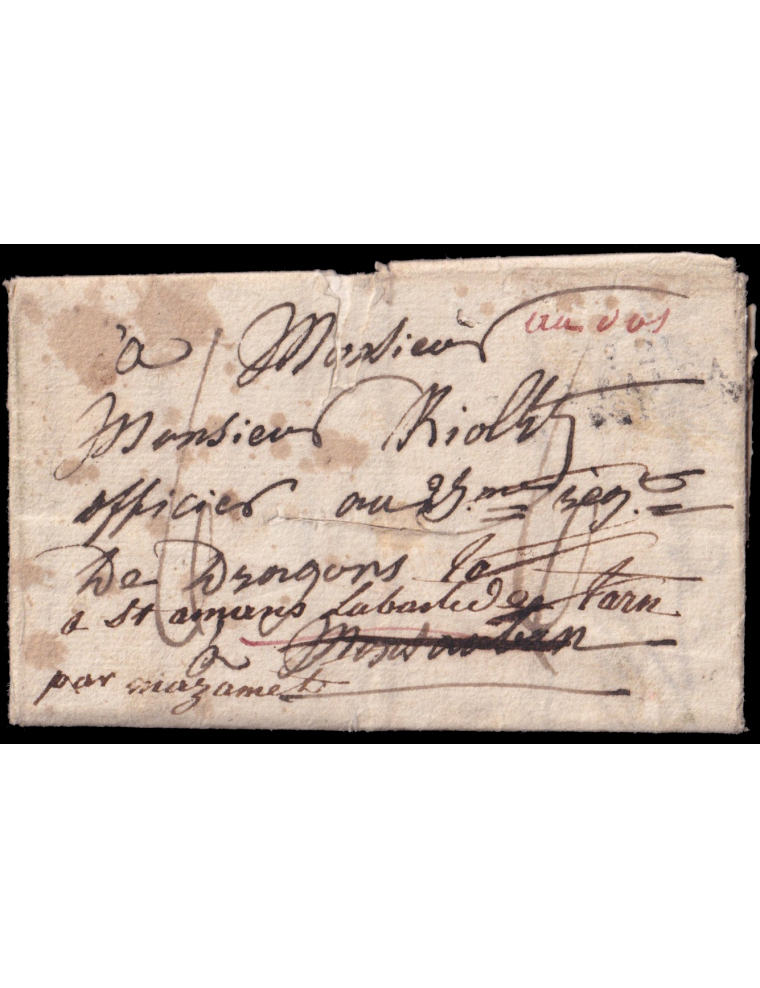 au dos
à Monsieur
Monsieur Riolz
officier au 25.me rég.t
De Dragons
a st amans labastide Tarn
à Montauban
par mazamet